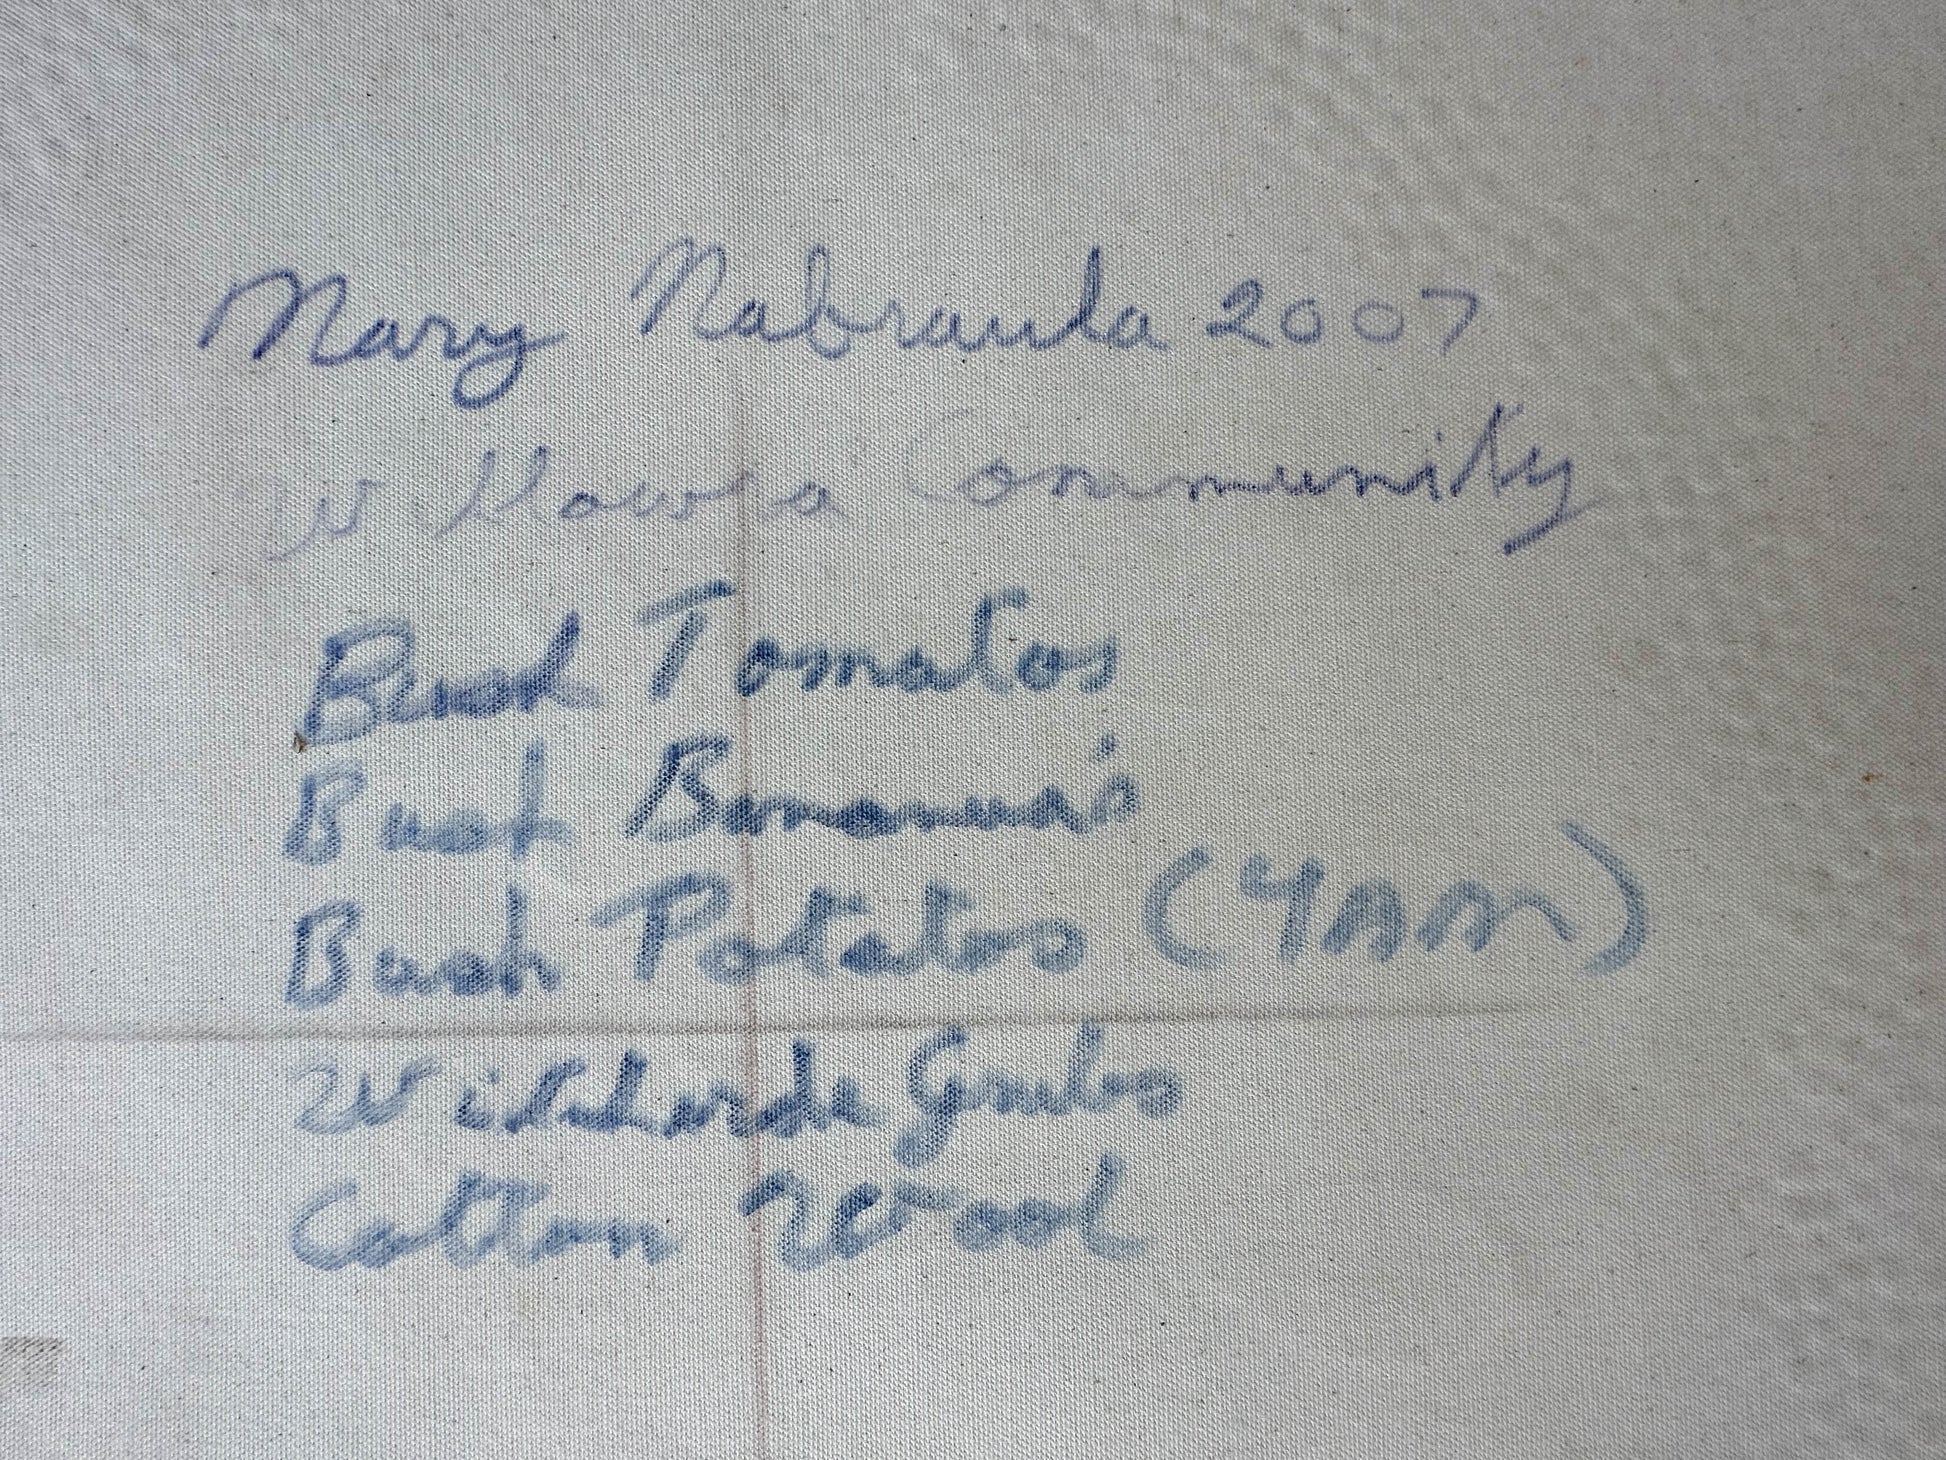 Mary Nabraula 2007
Willowra Community
Bush Tomatos
Bush Bananas
Bush Potatos (YAM)
Witchorde Grubs
Cotton Wool